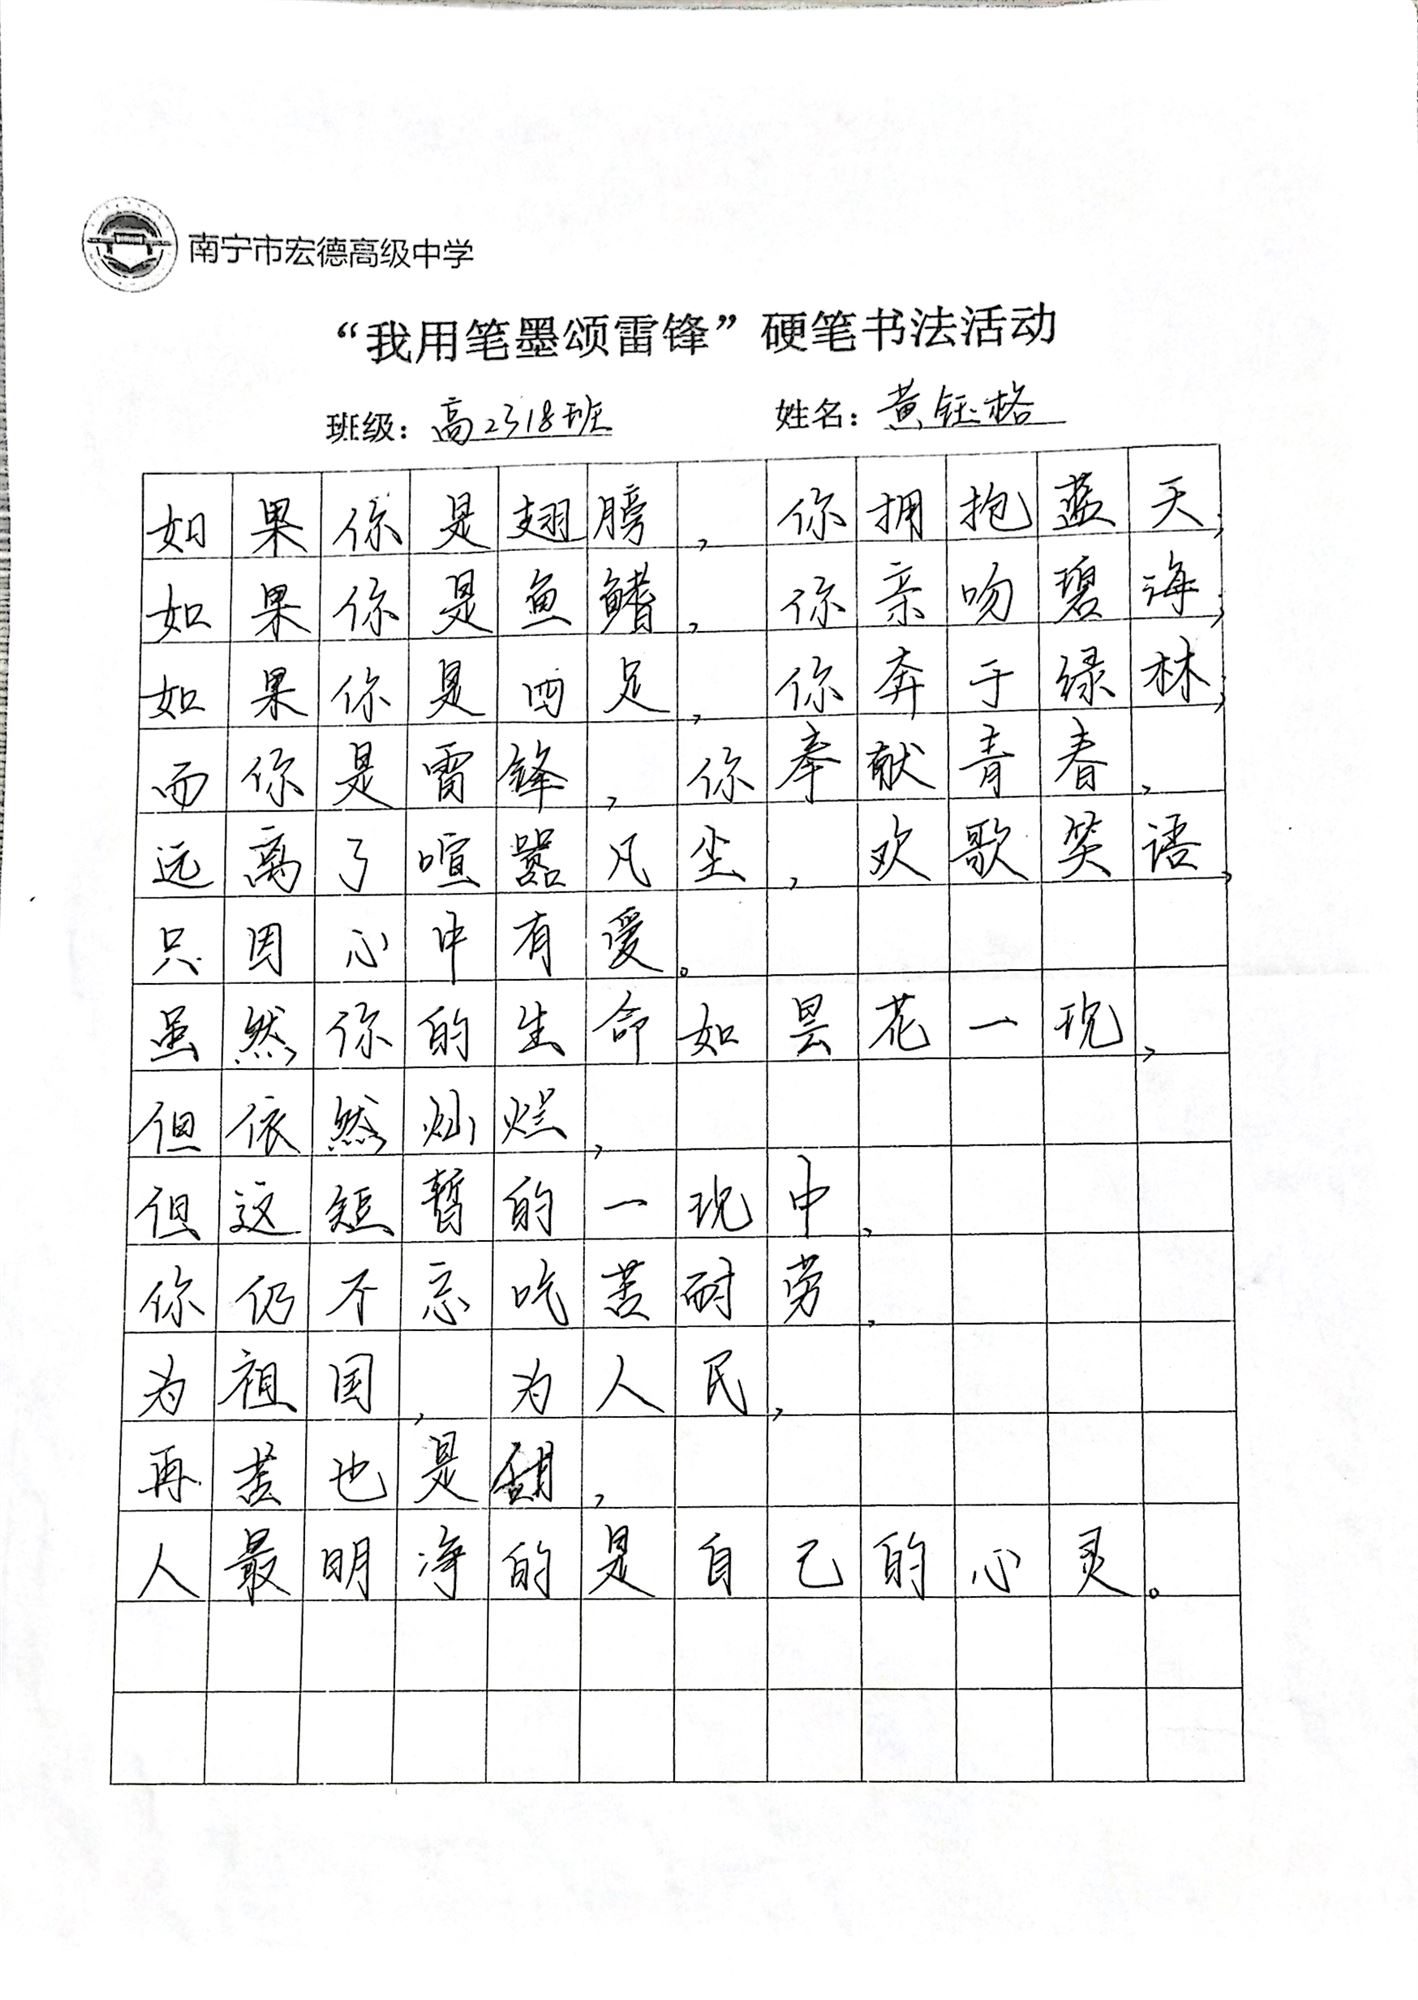 南宁市宏德高级中学
“我用笔墨颂雷锋”硬笔书法活动
班级：高2318班 姓名：黄钰格
如果你是翅膀，你拥抱蓝天；
如果你是鱼鳍，你亲吻碧海；
如果你是四足，你奔于绿林；
而你是雷锋，你奉献青春，
远离了喧嚣凡尘，欢歌笑语，
只因心中有爱。
虽然你的生命如昙花一现，
但依然灿烂，
但这短暂的一现中，
你仍不忘吃苦耐劳，
为祖国，为人民，
再苦也是甜，
人最明净的是自己的心灵。